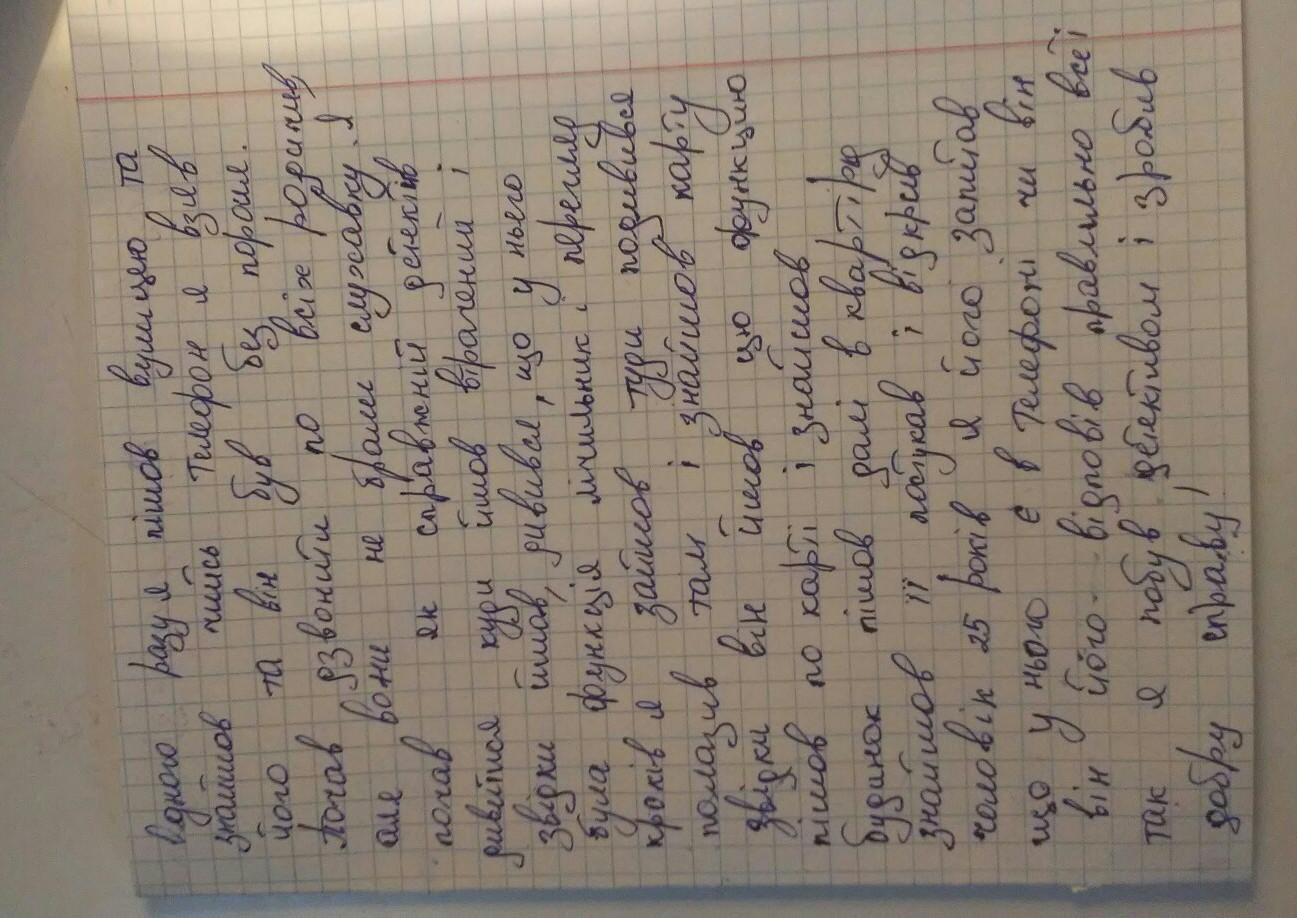 одного разу я пішов вулицею та
знайшов чийсь Телефон я взяв
його та він був без пороля.
Почав дзвонити по всіх родичив,
але вони не брали служавку. Я
почав як справжній детектів
дивитися куди йшов втрачений і
звідки йшов, дивився, що у нього
була функція лічильник і перегляд
кроків я зайшов туди подивився
полазив там і знайшов карту
звідки він йшов цю функцию
пішов по карті і знайшов
будинок пішов далі в квартірю
знайшов її постукав і відкрив
чоловік 25 років я його запитав
що у нього є в Телефоні чи він
він його відповів правильно всеї
так я побув детективом і зробив
добру справу!